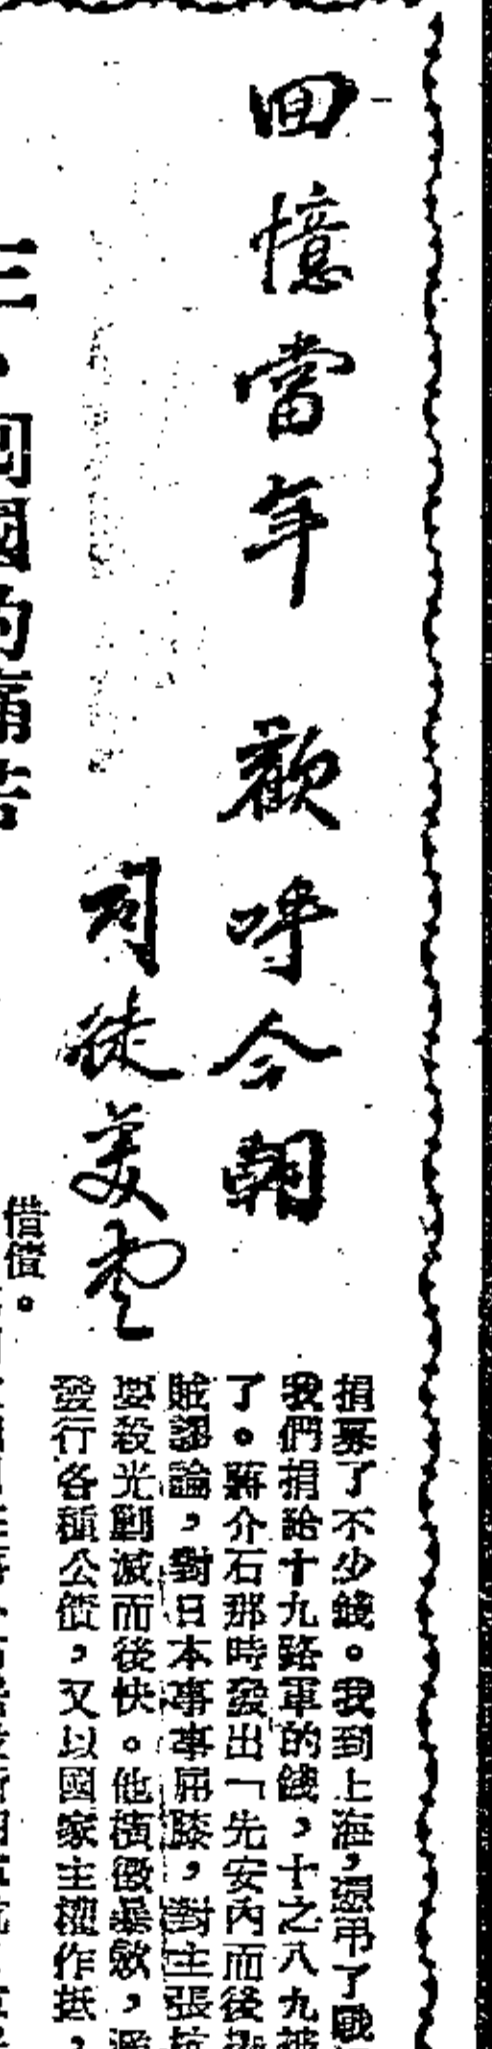 回憶當年 歡呼今朝
司徒美堂
捐募了不少錢。我到上海，憑弔了戰
我們捐給十九路軍的錢，十之八九被
了。蔣介石那時發出「先安內而後
賊謬論，對日本事事屈膝，對主張抗
要殺光剿滅而後快。他橫徵暴斂，濫
發行各種公債，又以國家主權作抵，
借債。
三、國的痛苦